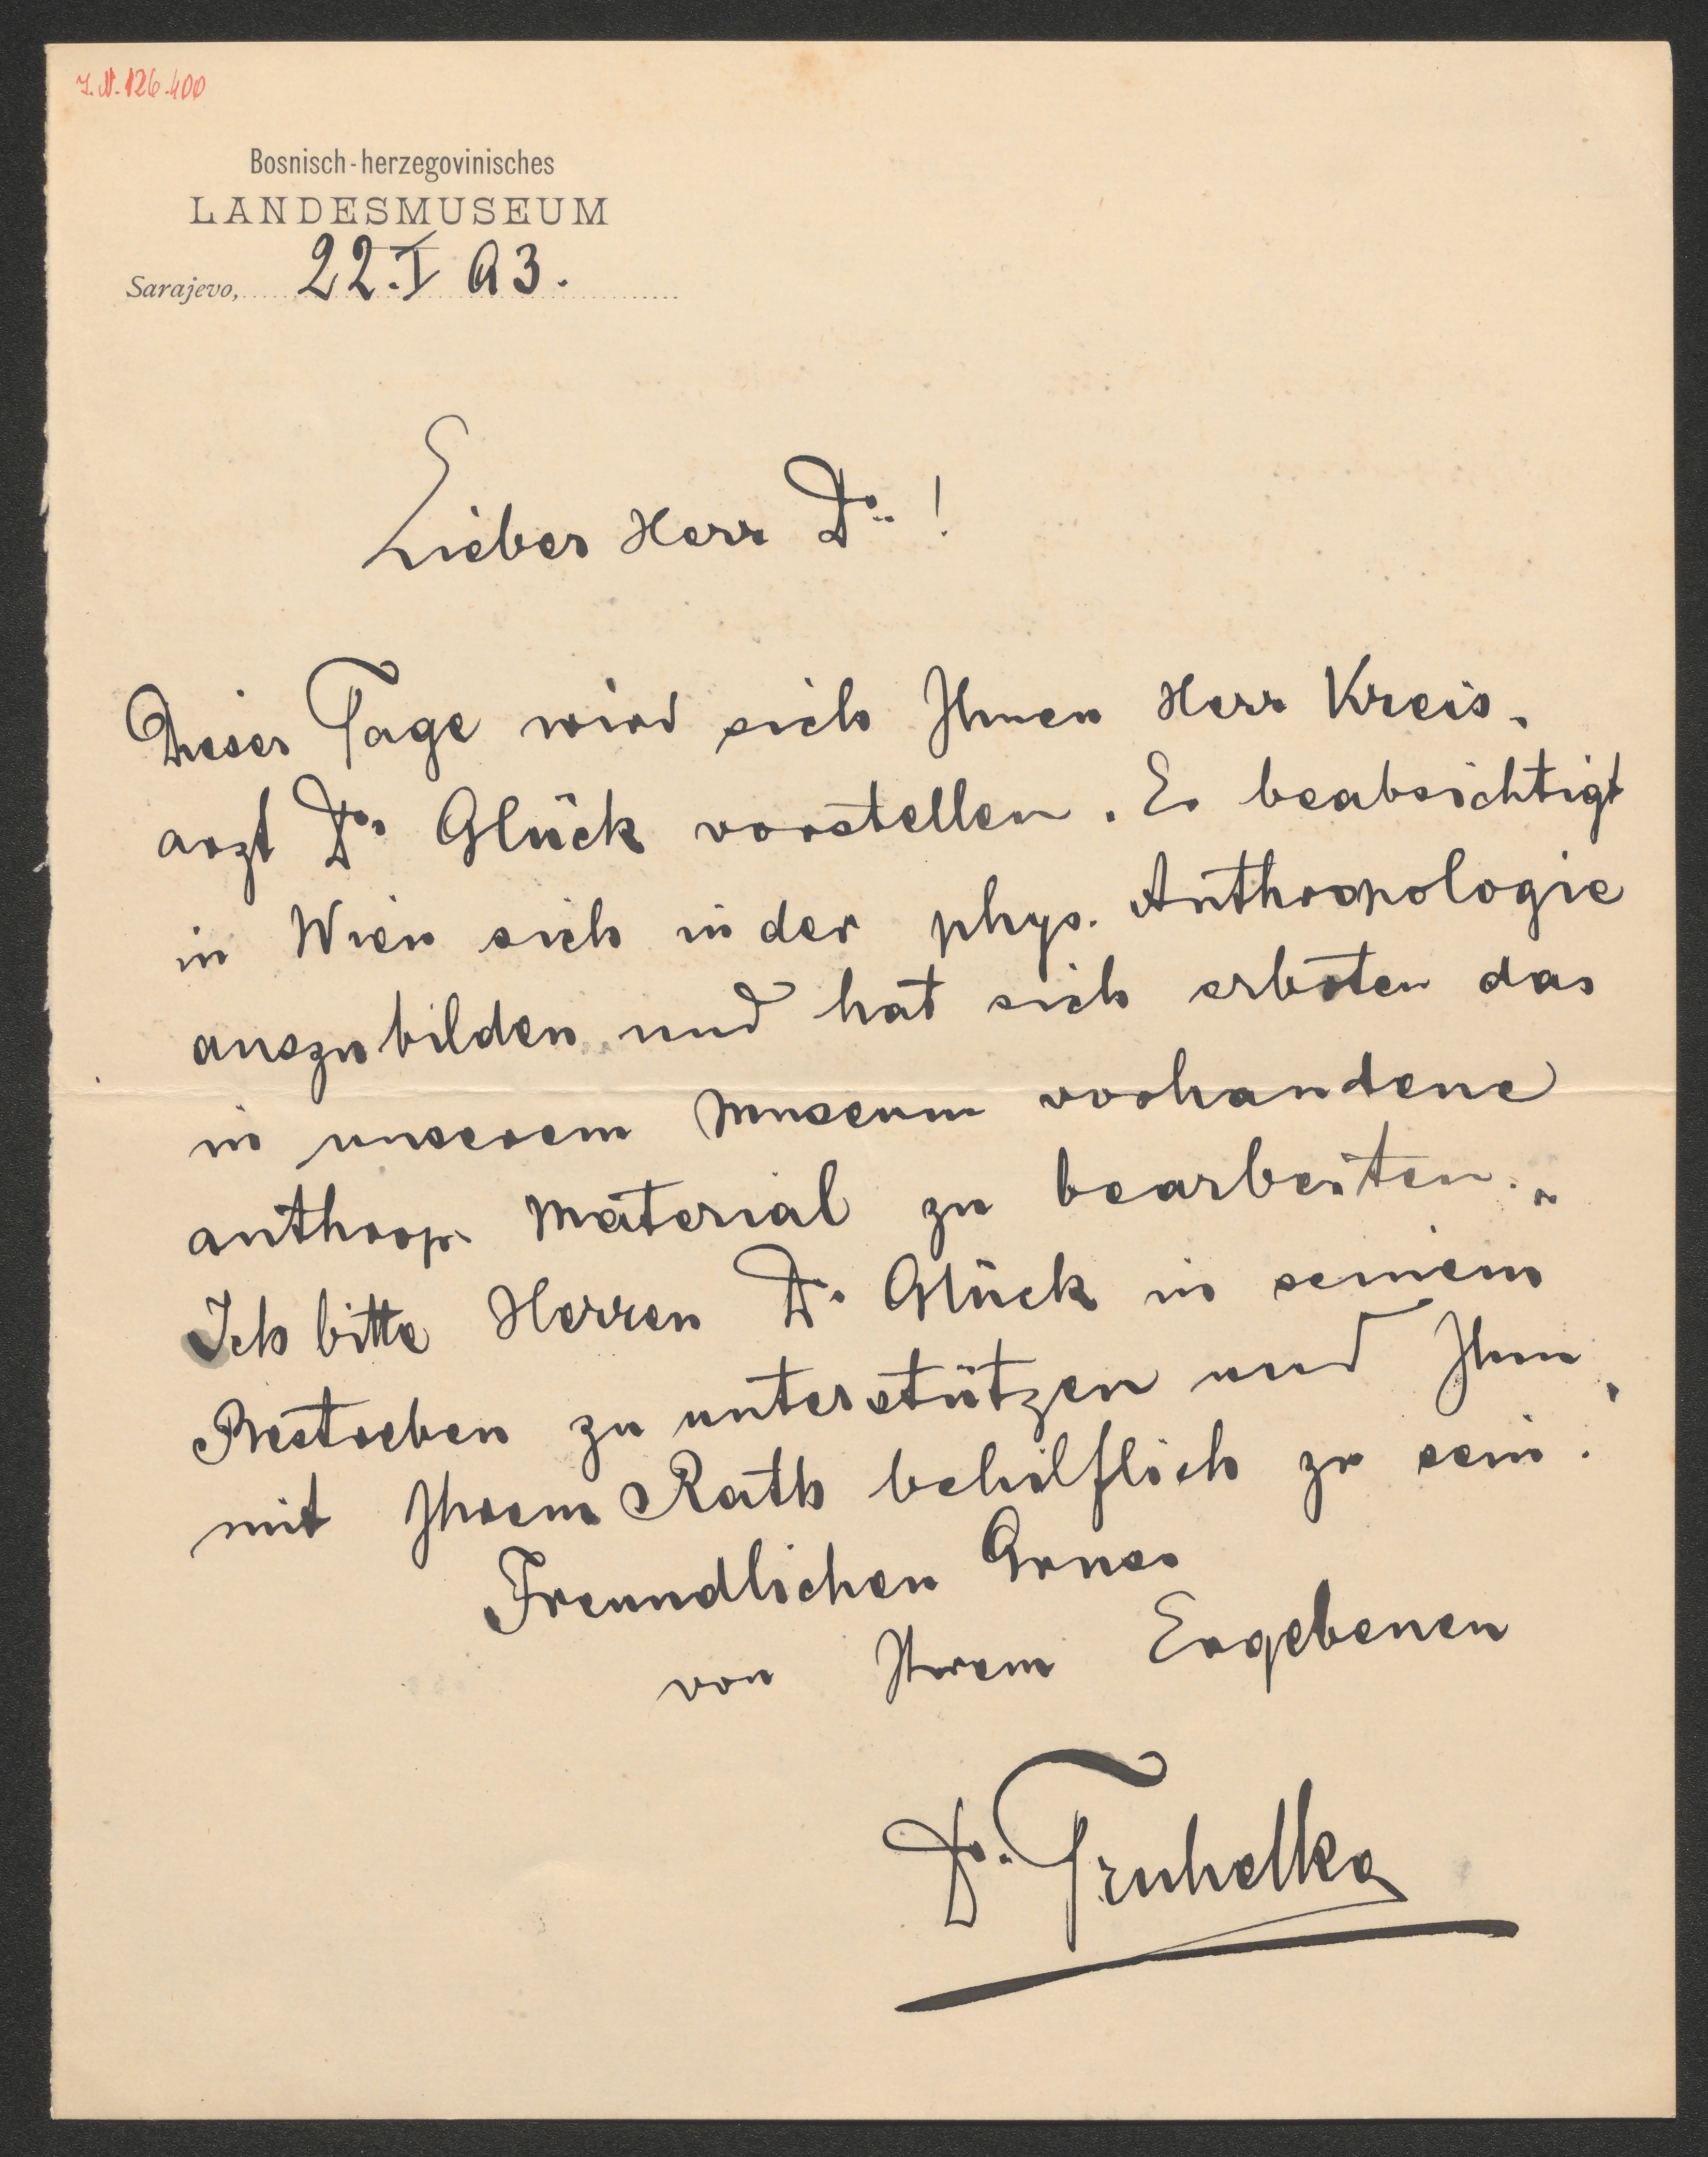 I. N. 126.400
Bosnisch-herzegovinisches
LANDESMUSEUM
Sarajevo, 22. I 93.
Lieber Herr Dr. !
Dieser Tage wird sich Ihnen Herr Kreis-
arzt Dr. Glück vorstellen. Er beabsichtigt
in Wien sich in der phys. Anthropologie
auszubilden und hat sich erboten das
in unserem Museum vorhandene
anthrop. Material zu bearbeiten.
Ich bitte Herren Dr. Glück in seinem
Bestreben zu unterstützen und Ihm
mit Ihrem Rath behilflich zu sein.
Freundlichen Gruss
von Ihrem Ergebenen
Dr. Truhelka